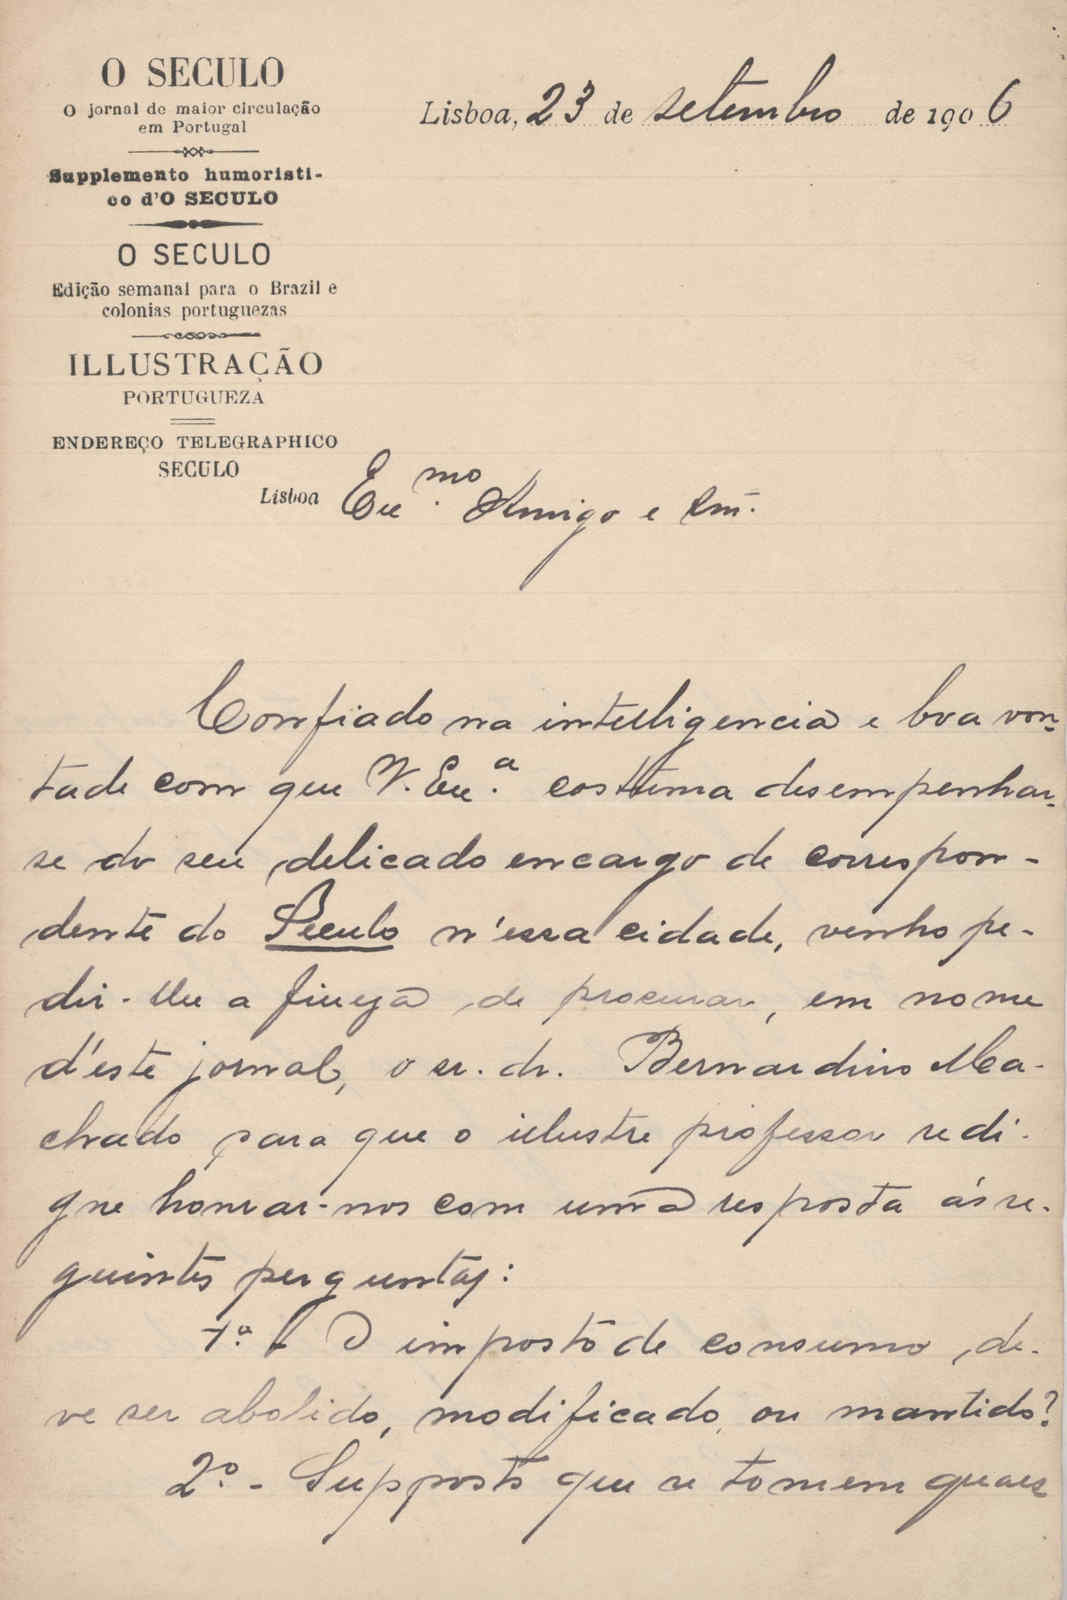 O SECULO
O jornal de maior circulação
em Portugal
Supplemento humoristi-
co d'O SECULO
O SECULO
Edição semanal para o Brazil e
colonias portuguezas
ILLUSTRAÇÃO
PORTUGUEZA
ENDEREÇO TELEGRAPHICO
SECULO
Lisboa
Lisboa, 23 de setembro de 1906
Ex.mo Amigo e Sr.
Confiado na intelligencia e boa von-
tade com que V. Ex.a costuma desempenhar-
se do seu delicado encargo de correspon-
dente do Seculo n'essa cidade, venho pe-
dir-lhe a fineza de procurar, em nome
d'este jornal, o sr. dr. Bernardino Ma-
chado para que o illustre professor se di-
gne honrar-nos com uma resposta ás se-
guintes perguntas:
1.a - O imposto de consumo, de-
ve ser abolido, modificado, ou mantido?
2.o - Supposto que se tomem quaes